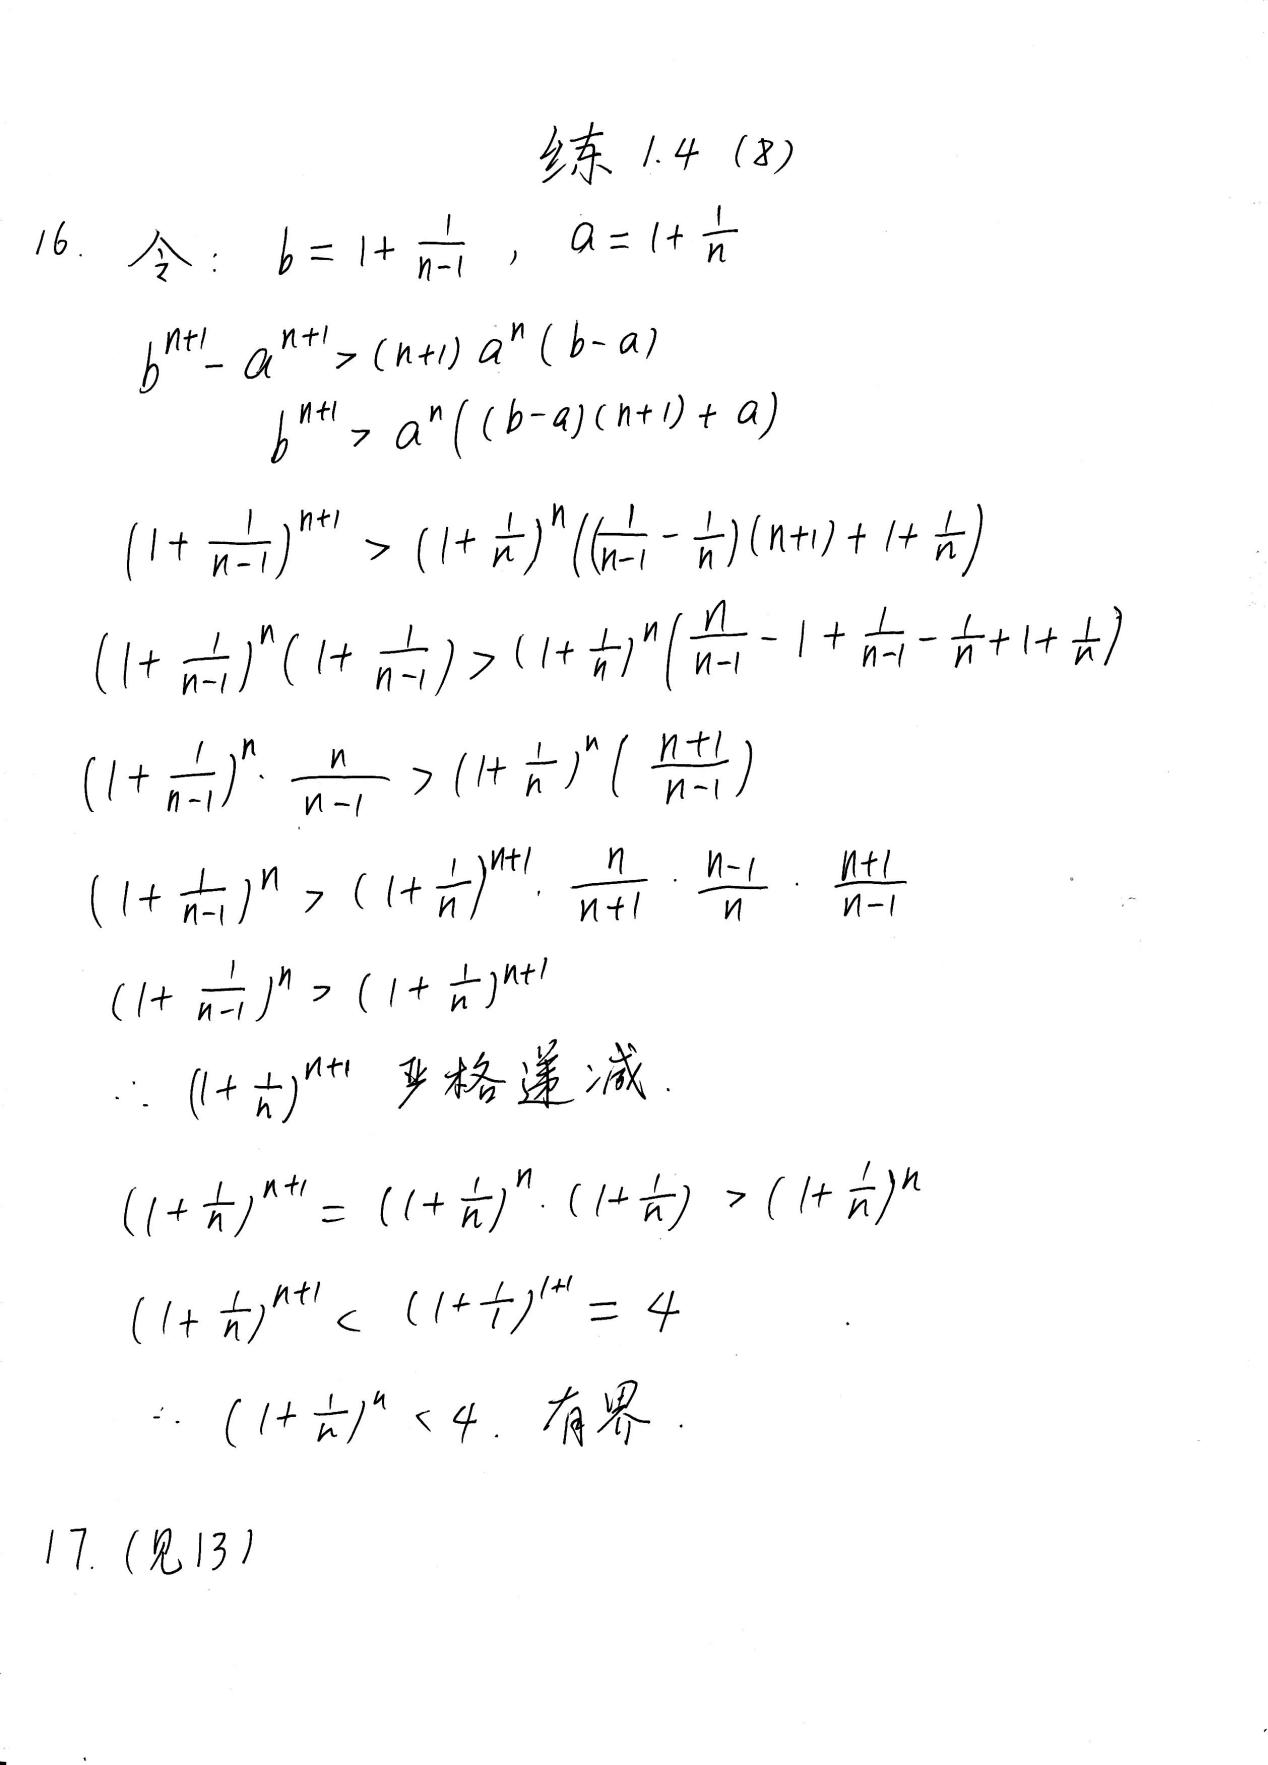 练 1.4 (8)
16. 令: b = 1 + \frac{1}{n-1} , a = 1 + \frac{1}{n}
b^{n+1} - a^{n+1} > (n+1) a^n (b-a)
b^{n+1} > a^n ((b-a)(n+1) + a)
(1 + \frac{1}{n-1})^{n+1} > (1 + \frac{1}{n})^n ((\frac{1}{n-1} - \frac{1}{n})(n+1) + 1 + \frac{1}{n})
(1 + \frac{1}{n-1})^n (1 + \frac{1}{n-1}) > (1 + \frac{1}{n})^n (\frac{n}{n-1} - 1 + \frac{1}{n-1} - \frac{1}{n} + 1 + \frac{1}{n})
(1 + \frac{1}{n-1})^n · \frac{n}{n-1} > (1 + \frac{1}{n})^n (\frac{n+1}{n-1})
(1 + \frac{1}{n-1})^n > (1 + \frac{1}{n})^{n+1} · \frac{n}{n+1} · \frac{n-1}{n} · \frac{n+1}{n-1}
(1 + \frac{1}{n-1})^n > (1 + \frac{1}{n})^{n+1}
∴ (1 + \frac{1}{n})^{n+1} 严格递减.
(1 + \frac{1}{n})^{n+1} = (1 + \frac{1}{n})^n · (1 + \frac{1}{n}) > (1 + \frac{1}{n})^n
(1 + \frac{1}{n})^{n+1} < (1 + \frac{1}{1})^{1+1} = 4
∴ (1 + \frac{1}{n})^n < 4. 有界.
17. (见13)